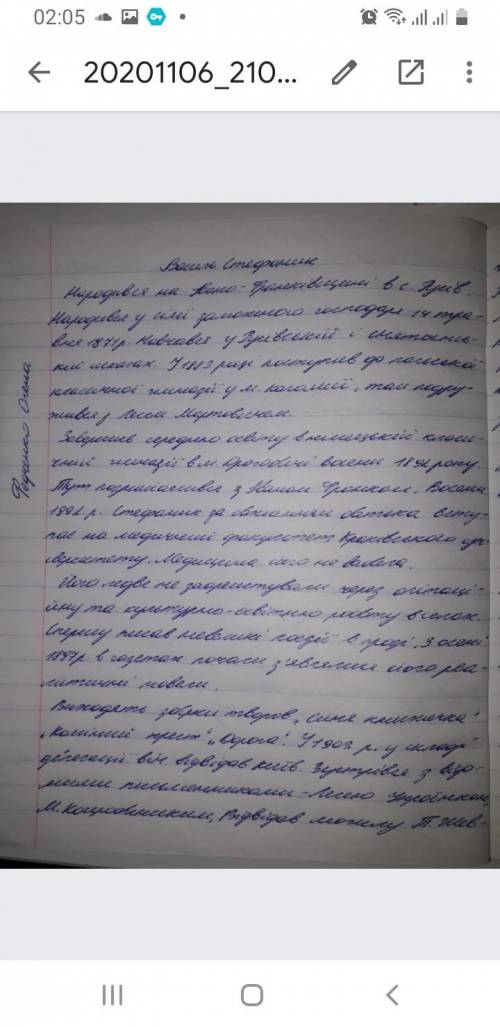 02:05
20201106_210...
Василь Стефаник
Народився на Івано-Франківщині в с. Русів.
Народився у сім'ї заможного господаря 14 тра-
вня 1871р. Навчався у Русівській і Снятинсь-
кій школах. У 1883 році поступив до польської
класичної гімназії у м. Коломиї, там подру-
жився з Лесом Мартовичем.
Завершив середню освіту в німецькій класи-
чній гімназії в м. Дрогобичі восени 1892 року.
Тут познайомився з Іваном Франком. Восени
1892 р. Стефаник за обіцянки батька всту-
пає на медичний факультет Краківського уні-
верситету. Медицина його не вабила.
Його ледве не заарештували через агітаці-
йну та культурно-освітню роботу в селах.
Спершу писав невеликі поезії в прозі. З осені
1897р. в газетах почали з'являтися його реа-
лістичні новели.
Виходять збірки творів „Синя книжечка"
„Камінний хрест" „Дорога". У 1903 р. у складі
делегації він відвідав Київ. Зустрівся з відо-
мими письменниками - Лесею Українкою,
М. Коцюбинським, Відвідав могилу Т. Шев-
Федунків Олена